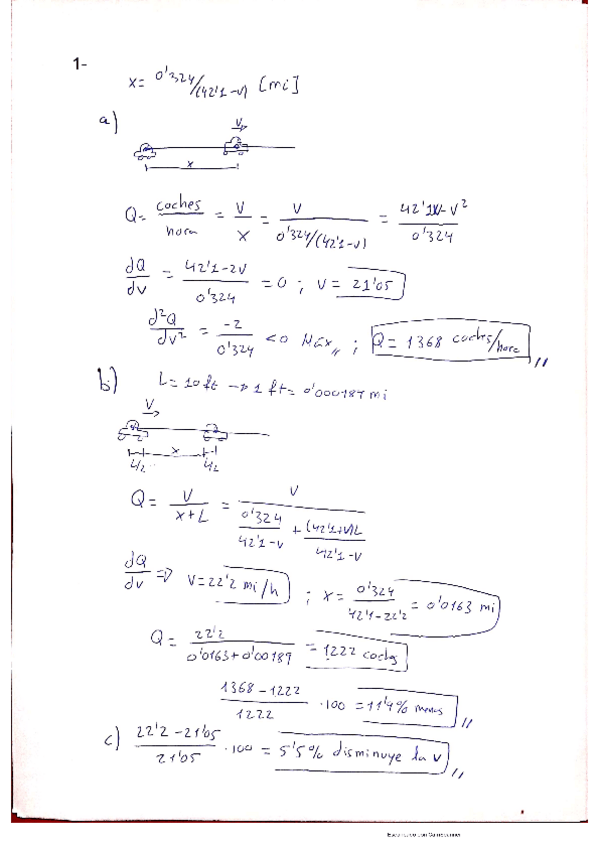 1-
x = 0'324/(42'1-v) [mi]
a)
V
x
Q = coches/hora = V/x = V/(0'324/(42'1-v)) = (42'1v - v²)/0'324
dQ/dv = (42'1-2v)/0'324 = 0 ; v = 21'05
d²Q/dv² = -2/0'324 < 0 Máx,, ; Q = 1368 coches/hora,,
b) L = 10 ft → 1 ft = 0'000189 mi
V
L/2 x L/2
Q = V/(x+L) = V/(0'324/(42'1-v) + (42'1+v)L/(42'1-v))
dQ/dv ⇒ V = 22'2 mi/h ; x = 0'324/(42'1-22'2) = 0'0163 mi
Q = 22'2/(0'0163+0'00189) = 1222 coches
(1368-1222)/1222 · 100 = 11'9% menos,,
c) (22'2-21'05)/21'05 · 100 = 5'5% disminuye la v,,
Escaneado con CamScanner